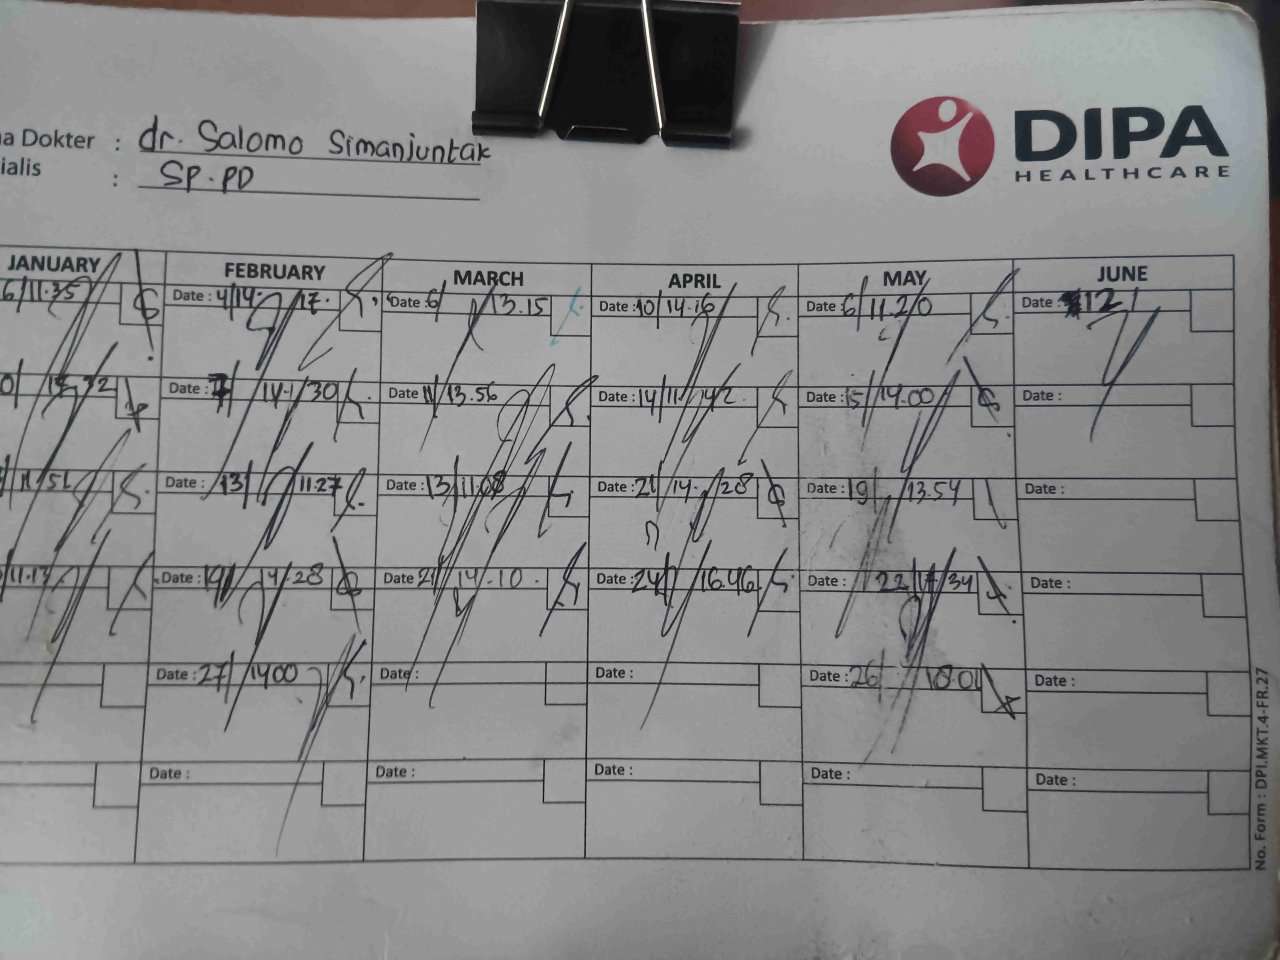 DIPA
HEALTHCARE
a Dokter : dr. Salomo Simanjuntak
ialis : SP.PD
JANUARY FEBRUARY MARCH APRIL MAY JUNE
6/11.35 Date : 4/14. 17. Date : 6/13.15 Date : 10/14.16 Date : 6/11.20 Date : 12/
Date : 14.30 Date 11/13.56 Date : 14/11.42 Date : 15/14.00 Date :
11.51 Date : 13/11.27 Date : 13/11.08 Date : 21/14.28 Date : 19/13.54 Date :
11.13 Date : 19/14.28 Date 21/14.10 Date : 24/16.46 Date : 22/17/34 Date :
Date : 27/1400 Date : Date : Date : 26/18.01 Date :
Date : Date : Date : Date : Date :
No. Form : DPI.MKT.4-FR.27